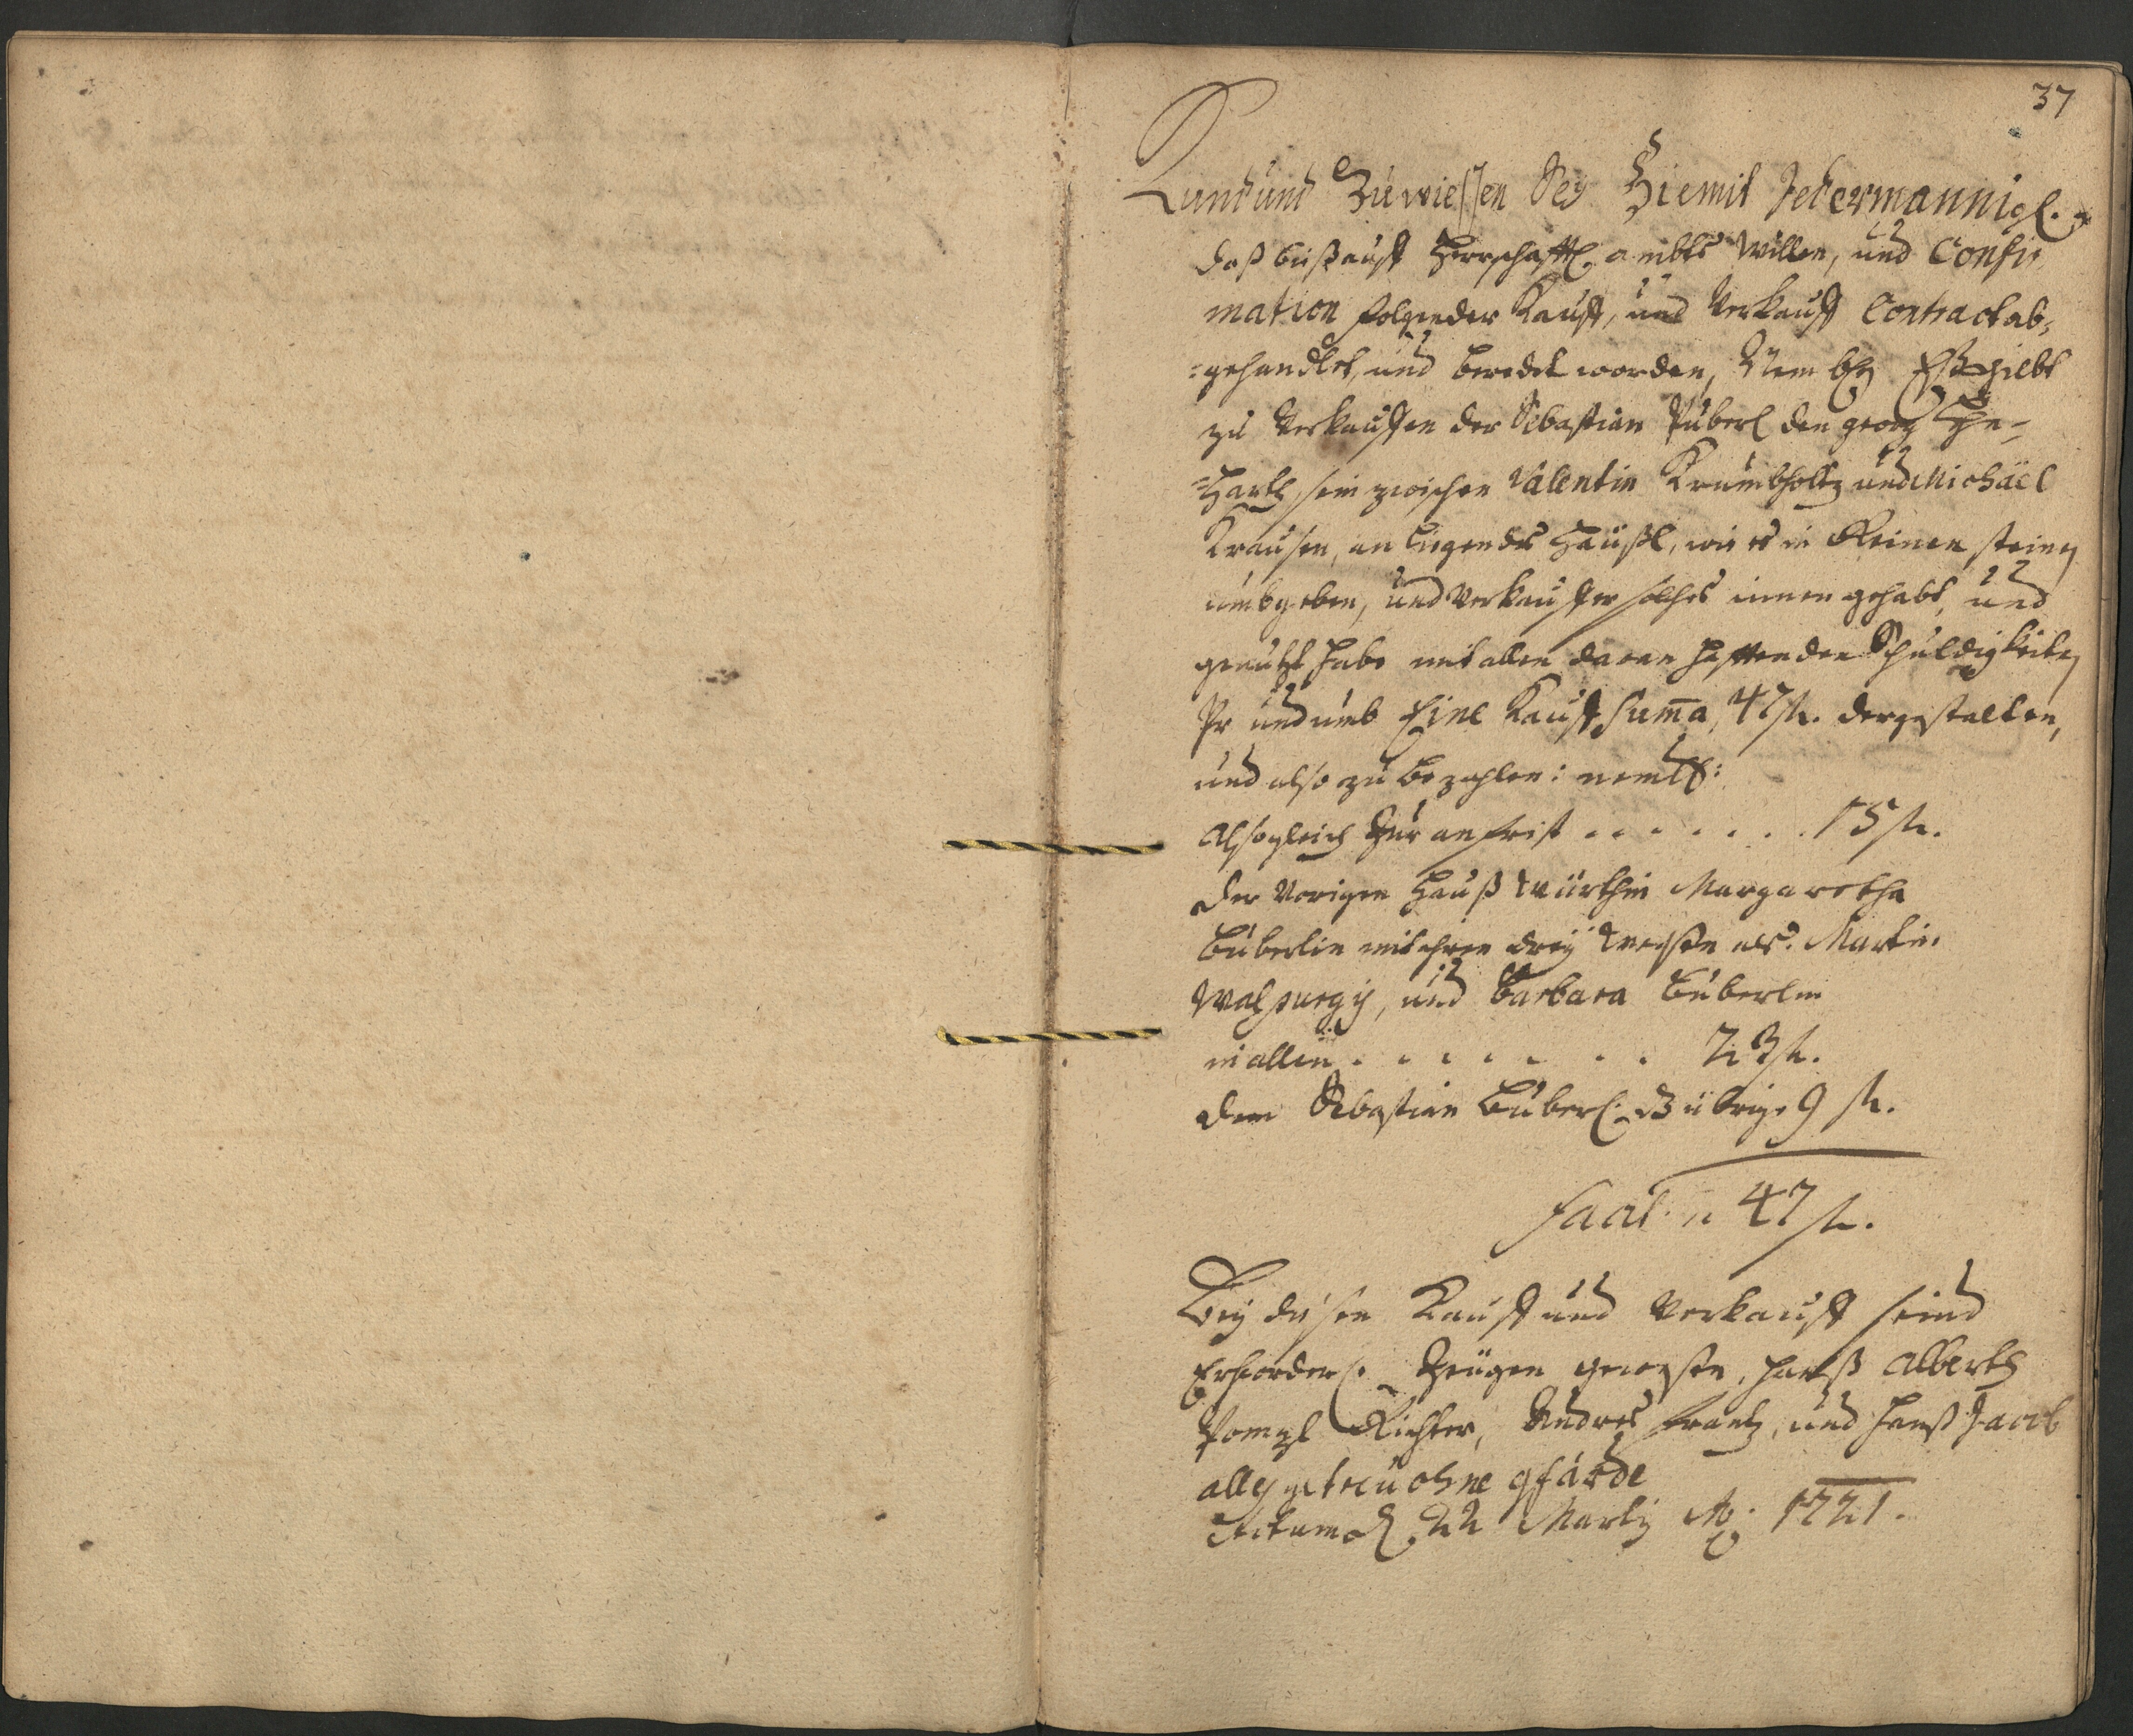 37
Kund und Zuwiessen Sey Hiemit Jedermannigl.
daß biß auf Herrschafftl. ambts Willen, und Confir
mation folgender Kauff, und Verkauff Contract ab=
=gehandlet, und beredet worden, Nembl. Eß giebt
zu Verkauffen der Sebastian Püberl den georg Ge=
=Hartl, sein zwischen Valentin Krumbholtz und Michäel
Krausen, an liegendes Häußl, wie es in Reinen steinen
umbgeben, und Verkauffer solches innen gehabt, und
genutzt habe mit allen daran hafftenden Schuldigkeiten
Pr und umb Eine Kauff Suma, 47 fl. dergestalten,
und also zu bezahlen: nembl:
Alsogleich Zur anfrist . . . . . . . 15 fl.
der Vorigen Hauß Würthin Margaretha
Büberlin mit ihren dreÿ Weysen als: Martin
Walpurgÿ, und Barbara Büberlin
in allen . . . . . . . 23 fl.
dem Sebastian Büberl. dz übrige 9 fl.
facit 47 fl.
Beÿ diesen Kauff und Verkauff seind
Erforderl. Zeügen geweßen, Hanß Alberth
Pompl Richter, Andres Frantz, und Hanß Jacob
alles getreu ohne gfärde
Actum d. 22 Martÿ Ao. 1721.